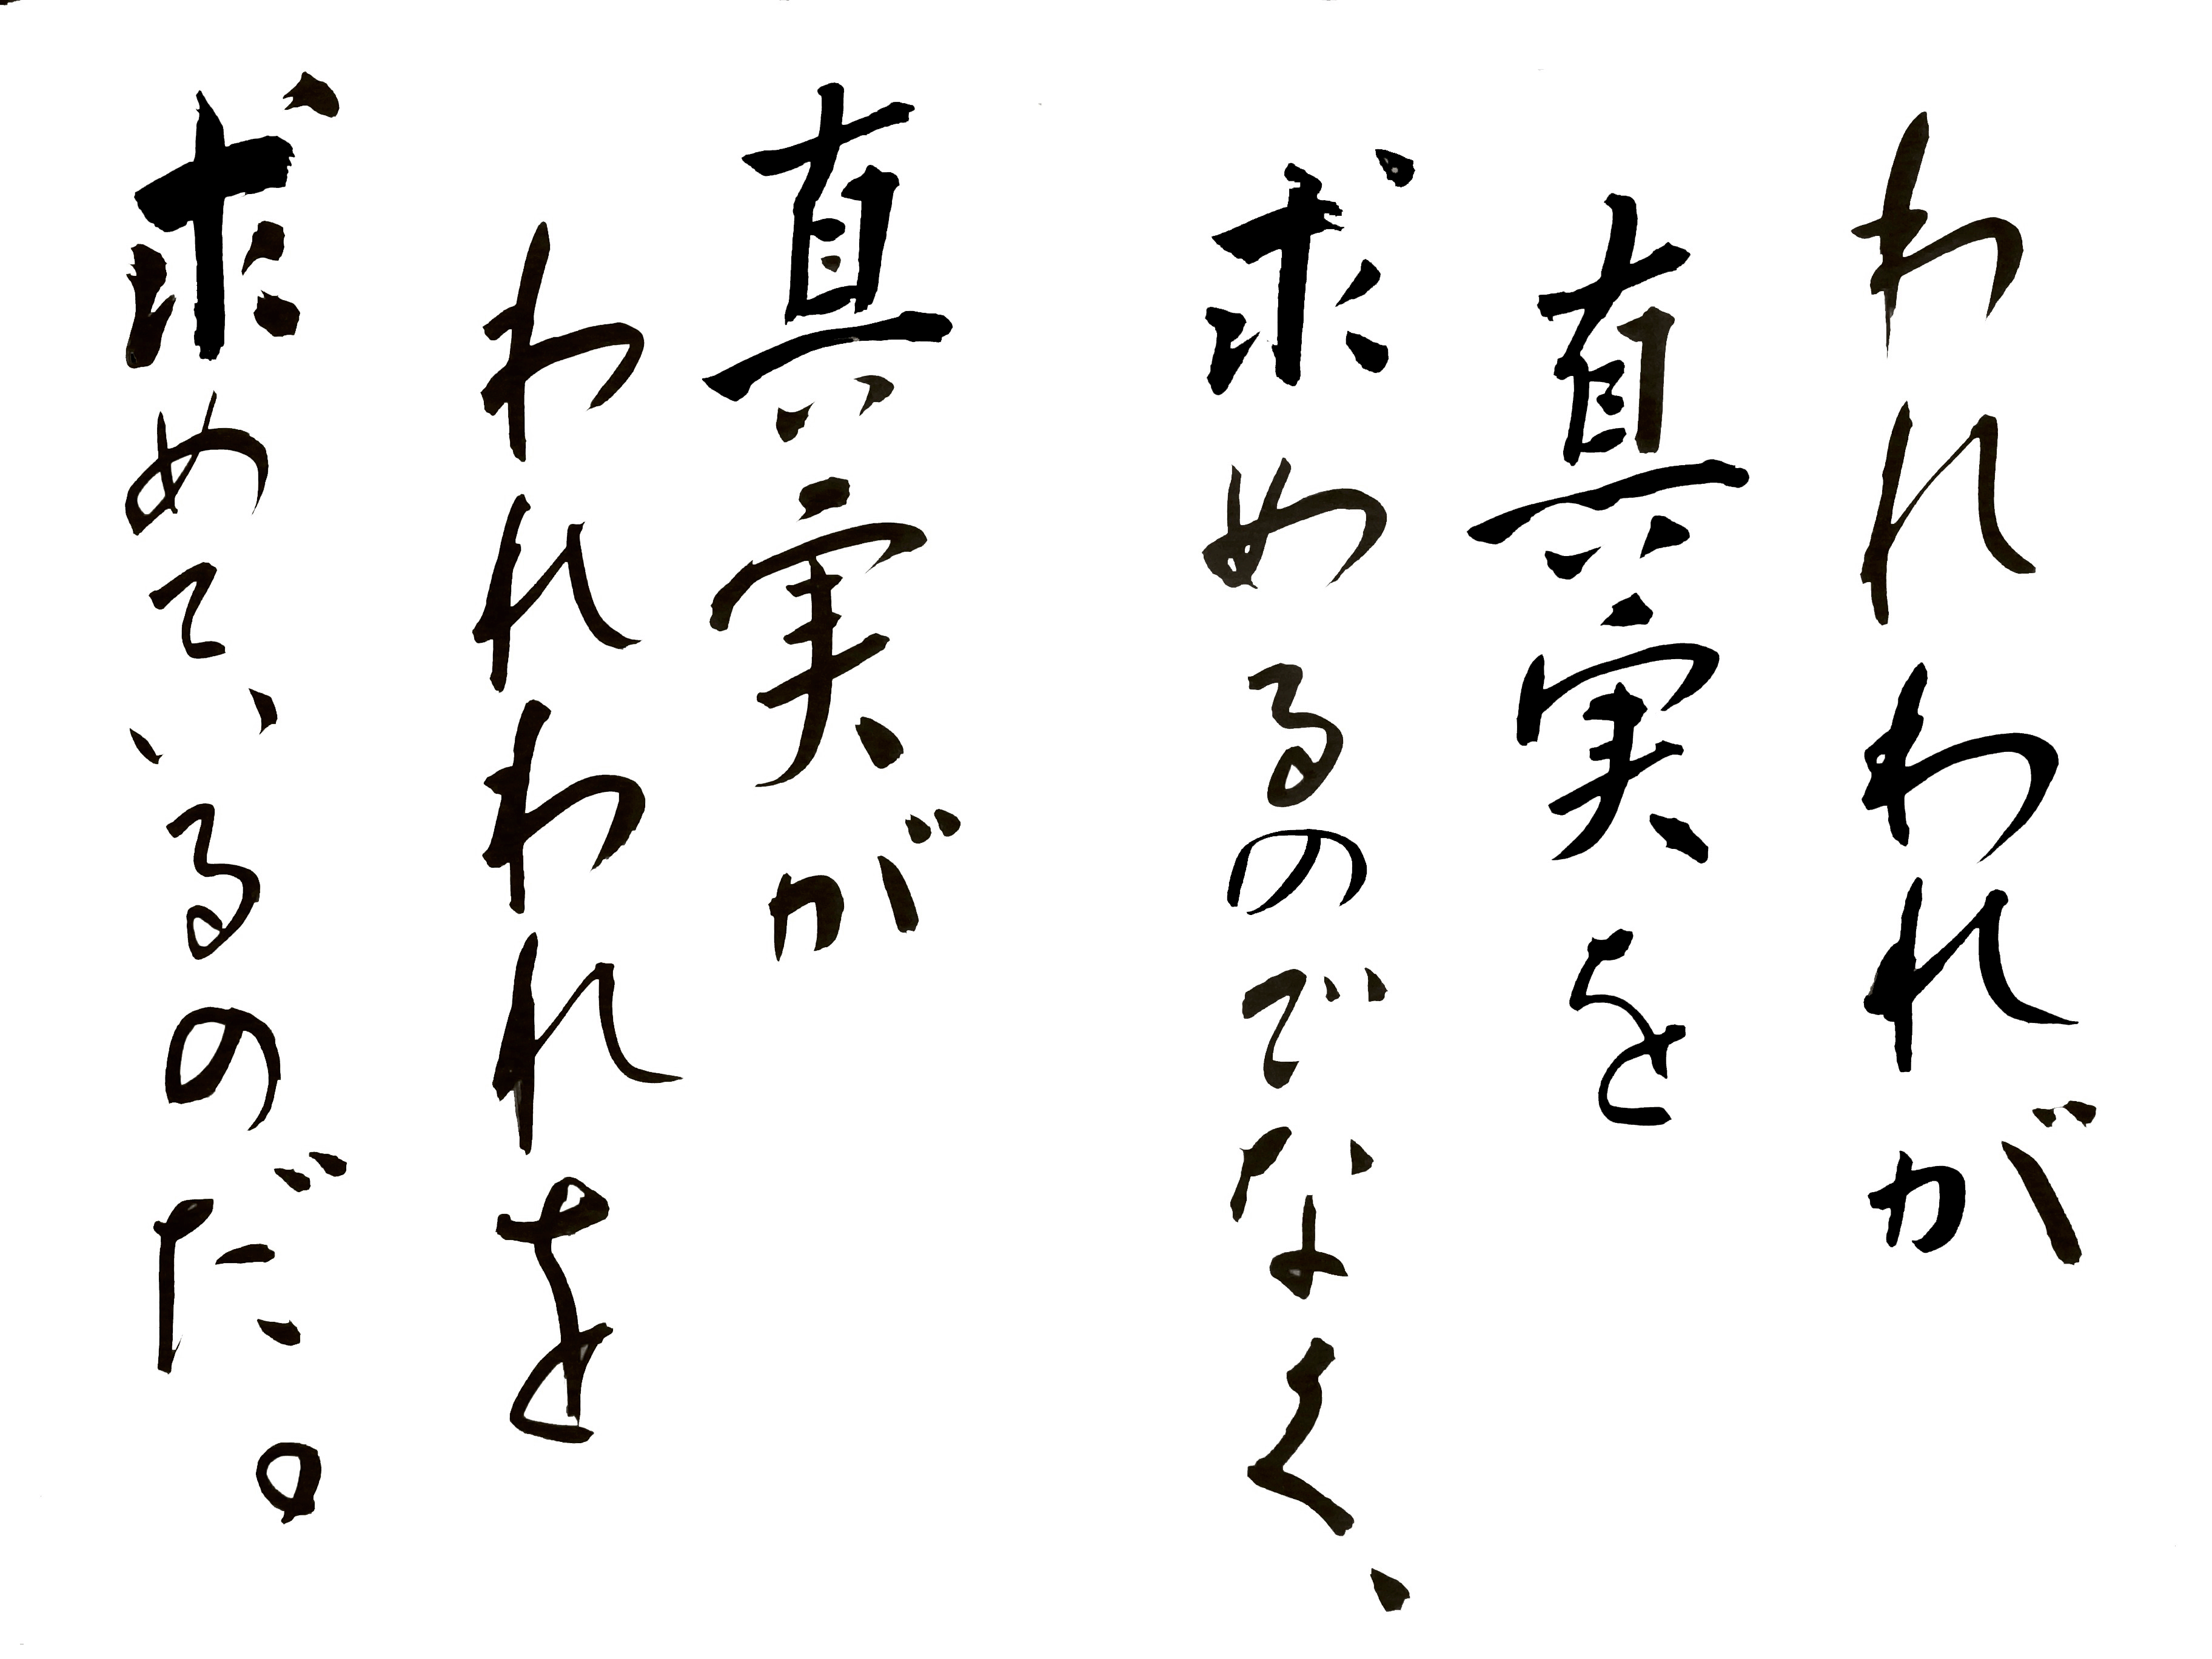 われわれが
真実を
求めるのでなく、
真実が
われわれを
求めているのだ。